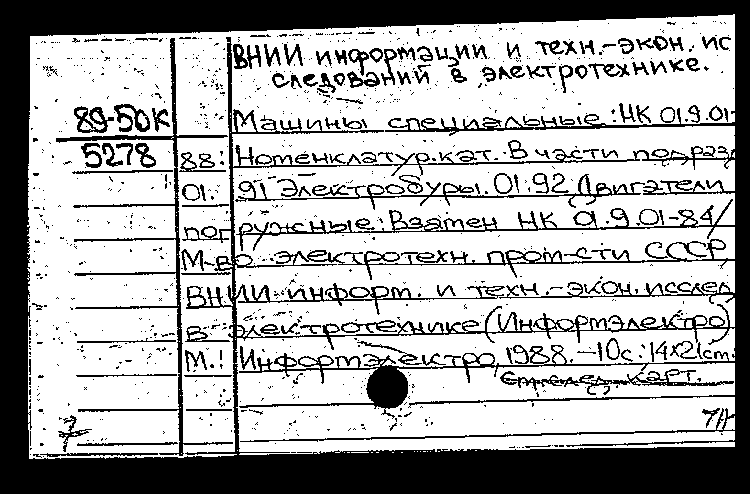 ВНИИ информации и техн.-экон. ис
следований в электротехнике.
89-50К
5278
Машины специальные: НК 01.9.01-
88: Номенклатур.кат. В части подразд
01. 91 Электробуры. 01.92 Двигатели
погружные: Взамен НК 01.9.01-84/
М-во электротехн. пром-сти СССР,
ВНИИ информ. и техн.-экон. исслед.
в электротехнике (Информэлектро)
М.: Информэлектро, 1988. - 10с.: 14×21см.
карт.
7